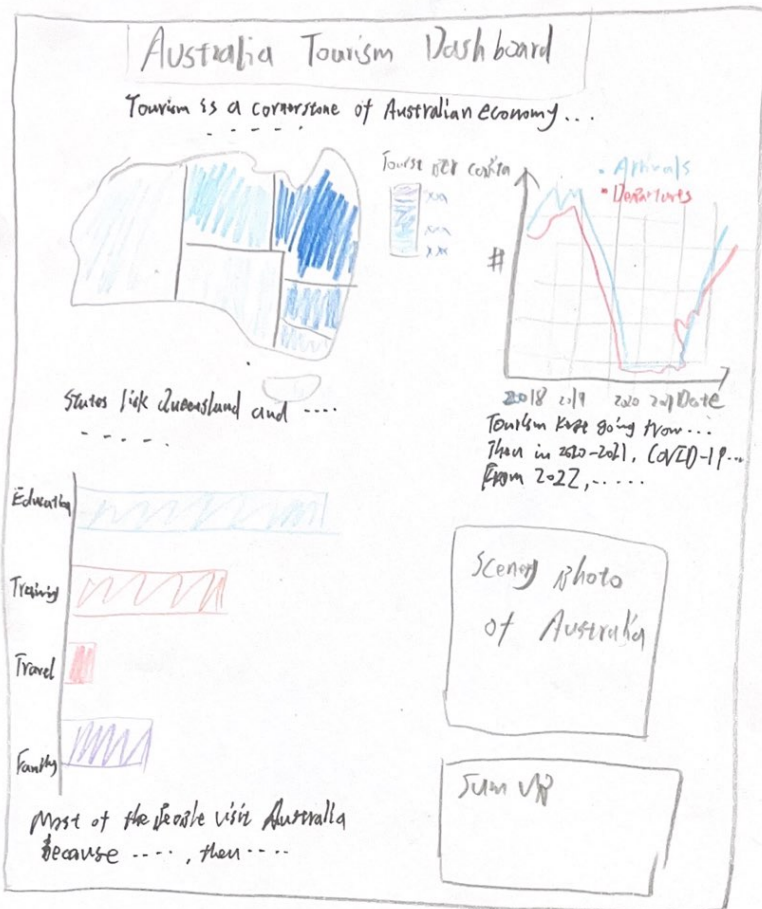 Australia Tourism Dashboard
Tourism is a cornerstone of Australian economy...
Tourist per
xxx
xxx
xxx
• Arrivals
• Departures
#
2018 2019 2020 2021 Date
States lisk Queensland and ....
Tourism going
Then in 2020-2021, COVID-19...
From 2022, .....
Education
Training
Travel
Family
Scenery Photo
of Australia
Most of the People visit Australia
because ...., then ....
Sum up